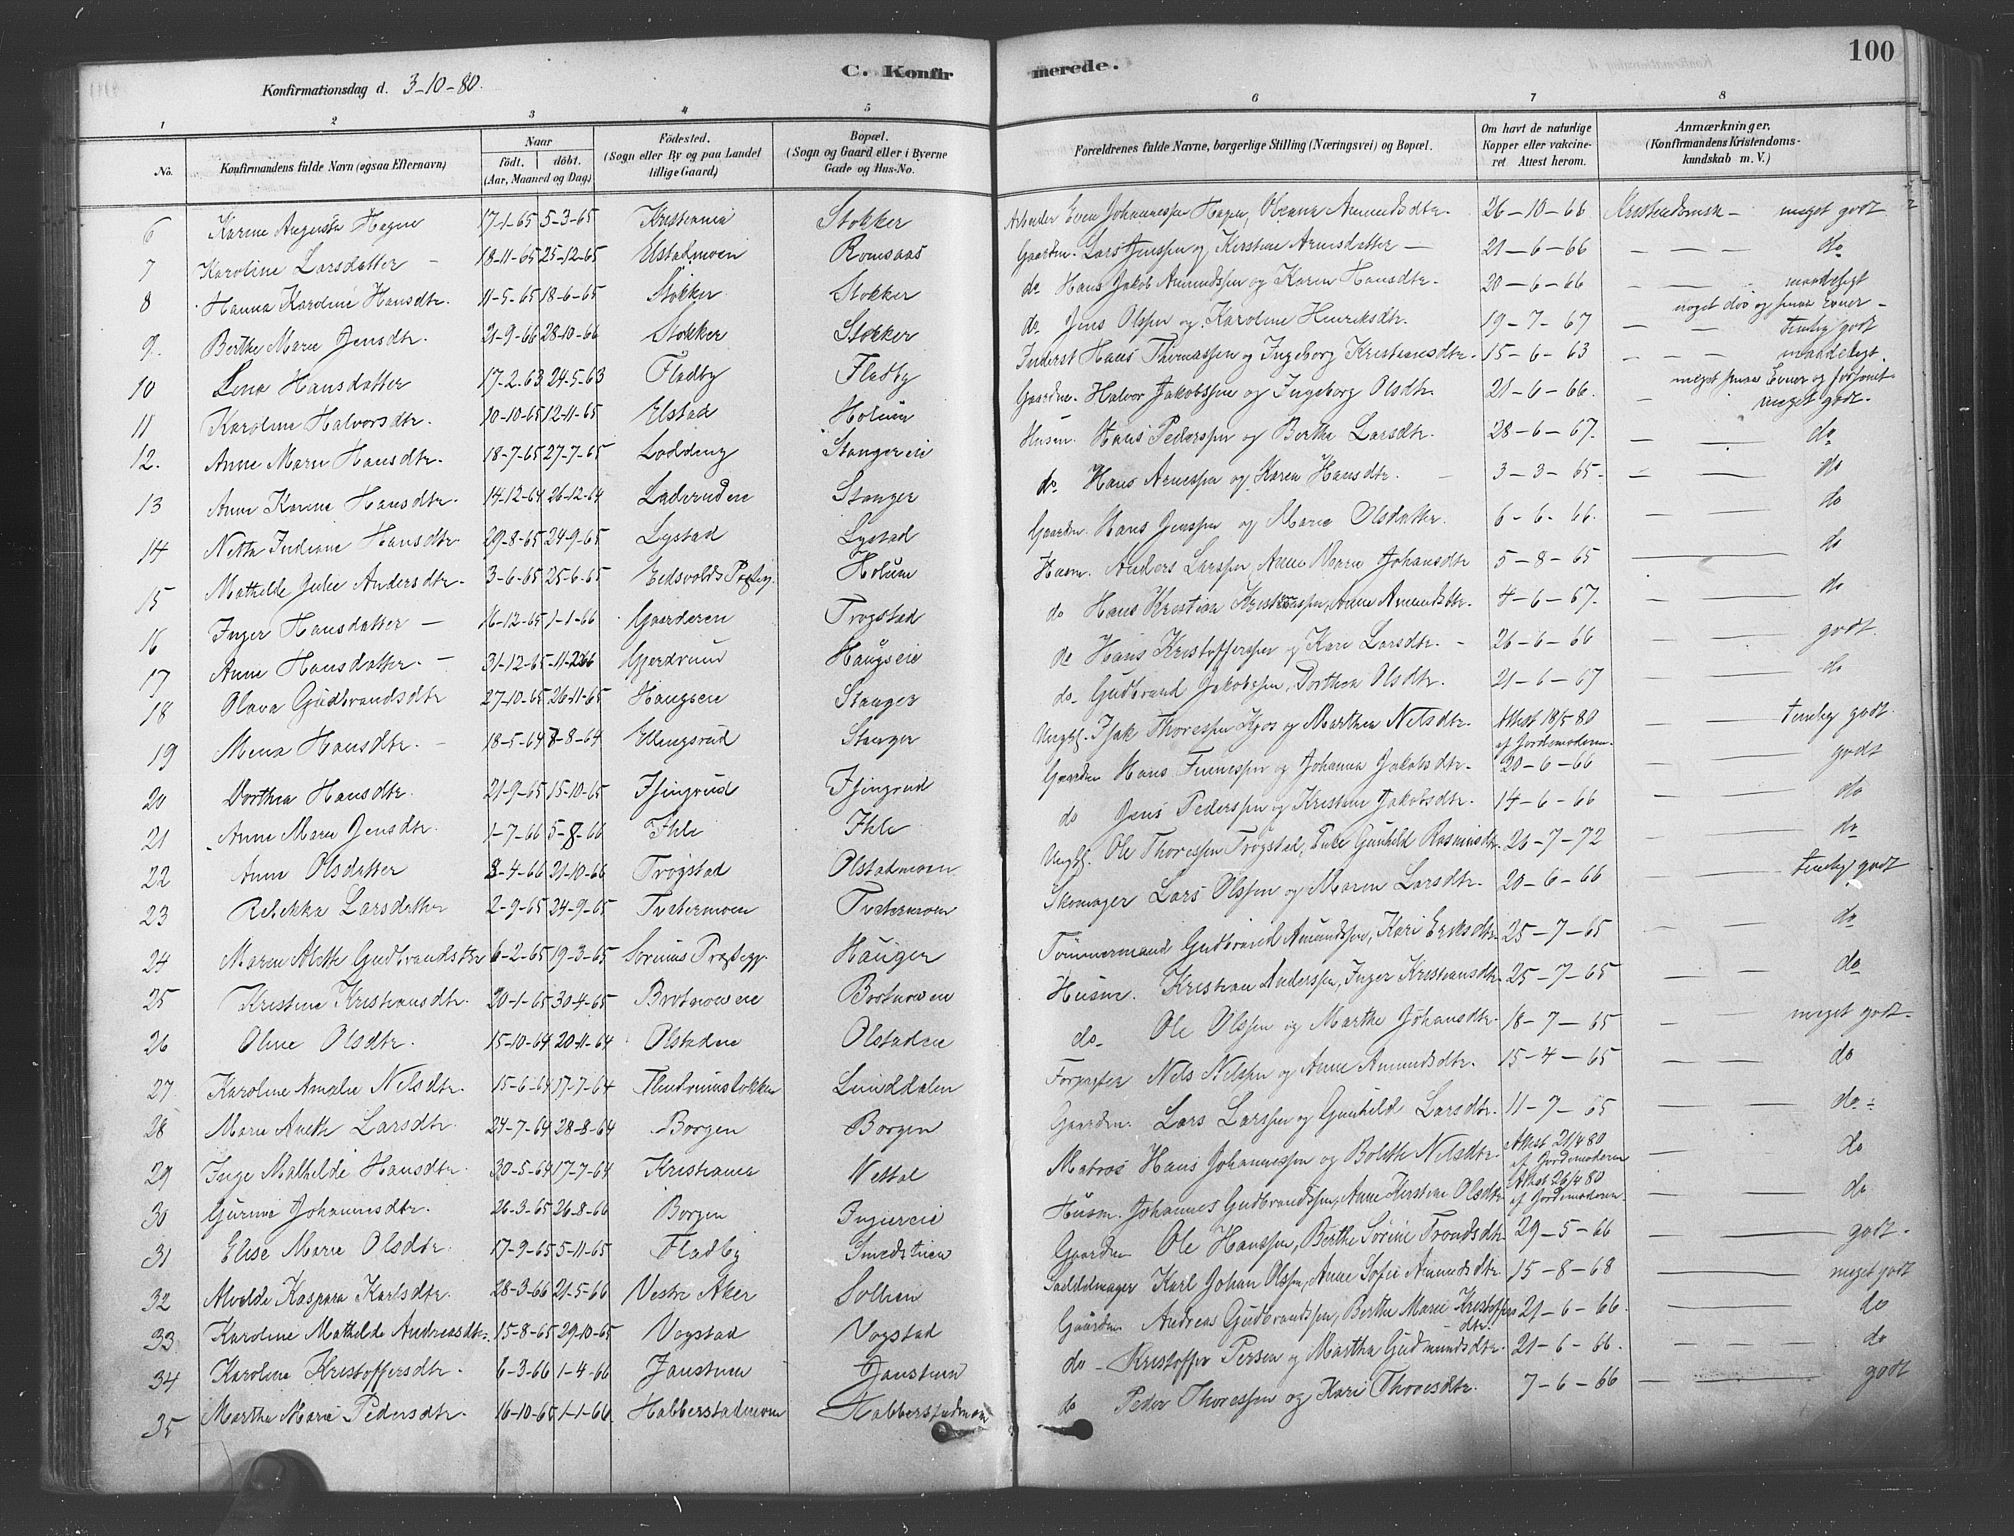 C. Konfir merede. 100
Konfirmationsdag d. 3-10-80.
1 2 3 4 5 6 7 8
No. Konfirmandens fulde Navn (ogsaa Efternavn) Naar födt. döbt. (Aar, Maaned og Dag) Födested. (Sogn eller By og paa Landet tillige Gaard) Bopæl. (Sogn og Gaard eller i Byerne Gade og Hus-No. Forældrenes fulde Navne, borgerlige Stilling (Næringsvei) og Bopæl. Om havt de naturlige Kopper eller vakcineret Attest herom. Anmærkninger. (Konfirmandens Kristendomskundskab m. V.)
6 Karine Augusta Hagen 17-1-65 5-3-65 Kristiania Stokker Arbeider Even Johannessen Hagen, Amundsdtr. 26-10-66 Kristendomsk - meget godt
7 Karoline Larsdatter - 18-11-65 25-12-65 Elstadmoen Romsaas Gaardm. Lars Jensen og Kirstine Arnesdatter - 21-6-66 do
8 Hanna Karoline Hansdtr. 11-5-65 18-6-65 Stokker Stokker do Hans Jakob Amundssen og Karen Hansdtr. 20-6-66 maadeligt noget døv og smaa Evner -
9 Berthe Marie Jensdtr. 21-9-66 28-10-66 Stokker Stokker do. Jens Olsen og Karoline Henriksdtr. 19-7-67 temlig godt
10 Lena Hansdatter 17-2-63 24-5-63 Fladby Fladby Inderst Hans Thomassen og Ingeborg Kristiansdtr. 15-6-63 maadeligt. meget smaa Evner og forsømt
11 Karoline Halvorsdtr. 10-10-65 12-11-65 Elstad Holum Gaardm. Halvor Jakobssen og Ingeborg Olsdtr. 21-6-66 meget godt.
12. Anne Marie Hansdtr. 18-7-65 27-7-65 Lodding Stangereie Husm. Hans Pederssen og Berthe Larsdtr. 28-6-67. do
13 Anne Karine Hansdtr. 14-12-64 26-12-64 Laderudeie Stanger do. Hans Arnessen og Karen Hansdtr. 3-3-65 do
14 Netta Indiane Hansdtr. 29-8-65 24-9-65 Lystad Lystad Gaardm. Hans Jenssen og Marie Olsdatter. 6-6-66. do
15 Mathilde Julie Andersdtr. 3-6-65 25-6-65 Eidsvolds Præsteg. Holum Husm. Anders Larssen, Anne Marie Johansdtr 5-8-65 do
16 Inger Hansdatter - 16-12-65 1-1-66 Gaarderen Trøgstad do Hans Kristian Kristianssen, Anne Amundsdtr. 4-6-67. do
17 Anne Hansdatter. - 31-12-65 11-2-66 Gjerdrum Haugseie do Hans Kristofferssen og Kari Larsdtr. 26-6-66 godt
18 Olava Gudbrandsdtr 27-10-65 26-11-65 Haugseie Stanger do. Gudbrand Jakobssen, Dorthea Olsdtr. 21-6-67 do
19 Mina Hansdtr. 18-5-64 7-8-64 Ellingsrud Stanger Ungkl. Isak Thoressen Kjos og Marthea Nilsdtr. Attest 18/5 80 af Jordemoderen temlig godt
20 Dorthea Hansdtr. 21-9-65 15-10-65 Isingrud Isingrud Gaardm Hans Finnessen og Johanna Jakobsdtr. 20-6-66 godt
21 Anne Marie Jensdtr. 1-7-66 5-8-66 Ihle Ihle do Jens Pederssen og Kristine Jakobsdtr. 14-6-66 do
22 Anne Olsdatter 8-4-66 21-10-66 Trøgstad Olstadmoen Ungkl. Ole Thoressen Trøgstad, Pike Gunhild Rasmusdtr. 26-7-72 do
23 Rebekka Larsdatter 2-9-65 24-9-65 Tvetermoen Tvetermoen Skomager Lars Olssen og Maren Larsdtr. 20-6-66 temlig godt
24 Maren Alette Gudbrandsdtr 6-2-65 19-3-65 Sørums Præstegj. Hauger Tømmermand Gudbrand Amundssen, Kari Eriksdtr. 25-7-65 do
25 Kristine Kristiansdtr. 20-1-65 30-4-65 Brotnoweie Brotnoweie Husm. Kristian Anderssen, Inger Kristiansdtr. 25-7-65 do
26 Oline Olsdtr. 15-10-64 20-11-64 Olstadeie Olstadeie do- Ole Olssen og Marthe Johansdtr. 18-7-65 meget godt.
27 Karoline Amalie Nilsdtr. 15-6-64 17-7-64 Lunddalen Forpagter Nils Nilssen og Anne Amundsdtr. 15-4-65 do
28 Marie Aneth Larsdtr. 24-7-64 28-8-64 Borgen Borgen Gaardm. Lars Larssen og Gunhild Larsdtr. 11-7-65 do.
29 Inge Mathilde Hansdtr. 30-5-64 17-7-64 Kristiania Vettal Matros Hans Johannessen og Bolette Nilsdtr. Attest 21/4 80 af Jordemoderen do
30 Gurine Johannesdtr. 26-3-65 26-8-66 Borgen Ingiereie Husm. Johannes Gudbrandssen, Anne Kirstine Olsdtr. Attest 26/4 80 af Jordemoderen. do
31 Elise Marie Olsdtr. 17-9-65 5-11-65 Fladby Smedstuen Gaardm Ole Hanssen, Berthe Sørine Trondsdtr 29-5-66 godt.
32 Alvilde Kaspara Karlsdtr. 28-3-66 21-5-66 Vestre Aker Solheim Saddelmager Karl Johan Olssen, Anne Sofie Amundsdtr. 15-8-68 meget godt
33 Karoline Mathilde Andreasdtr. 15-8-65 29-10-65 Vogstad Vogstad Gaardm Andreas Gudbrandssen, Berthe Marie Kristoffers dtr. 21-6-66. do
34 Karoline Kristoffersdtr. 6-3-66 1-4-66 Jaustuen Jaustuen do - Kristoffer Persen og Martha Gudmundsdtr. 21-6-66. do
35 Marthe Marie Pedersdtr. 16-10-65 1-1-66 Habberstadmoen Habberstadmoen do Peder Thoressen og Kari Thoresdtr. 7-6-66 godt